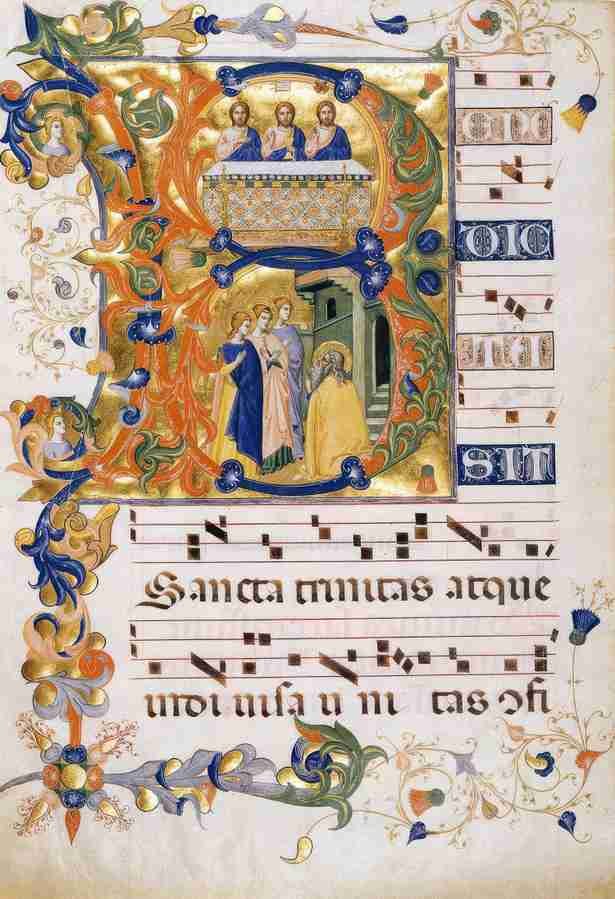 B ENE
DIC
TA
SIT
Sancta trinitas atque
indi uisa u ni tas ɔfi